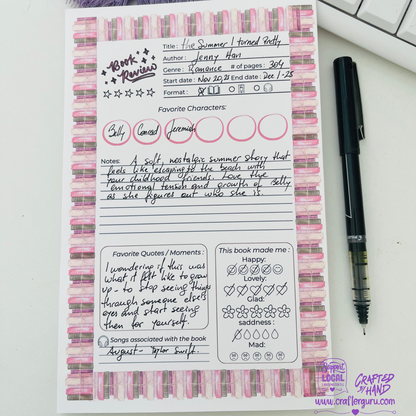 Book Review
Title : the Summer I turned Pretty
Author : Jenny Han
Genre : Romance # of pages : 304
Start date : Nov 20,25 End date : Dec 1-25
Format :
Favorite Characters:
Belly Conrad Jeremiah
Notes: A soft, nostalgic summer story that
feels like escaping to the beach with
your childhood friends. Love the
emotional tension and growth of Belly
as she figures out who she is.
Favorite Quotes / Moments :
I wondering if this was
what it felt like to grow
up - to stop seeing things
through someone else's
eyes and start seeing
then for yourself.
This book made me :
Happy:
Lovely:
Glad:
saddness :
Mad:
Songs associated with the book
August - Taylor Swift.
Support
LOCAL
CRAFTED
BY
HAND
www.crafterguru.com